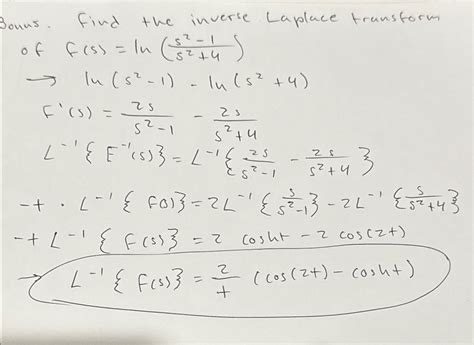 Bonus. Find the inverse Laplace transform
of F(s) = ln (s² - 1 / s² + 4)
→ ln (s² - 1) - ln (s² + 4)
F'(s) = 2s / s² - 1 - 2s / s² + 4
L⁻¹ { F⁻¹(s) } = L⁻¹ { 2s / s² - 1 - 2s / s² + 4 }
-t · L⁻¹ { F(s) } = 2L⁻¹ { s / s² - 1 } - 2L⁻¹ { s / s² + 4 }
-t L⁻¹ { F(s) } = 2 cosht - 2 cos(2t)
→ L⁻¹ { F(s) } = 2 / t (cos(2t) - cosht)